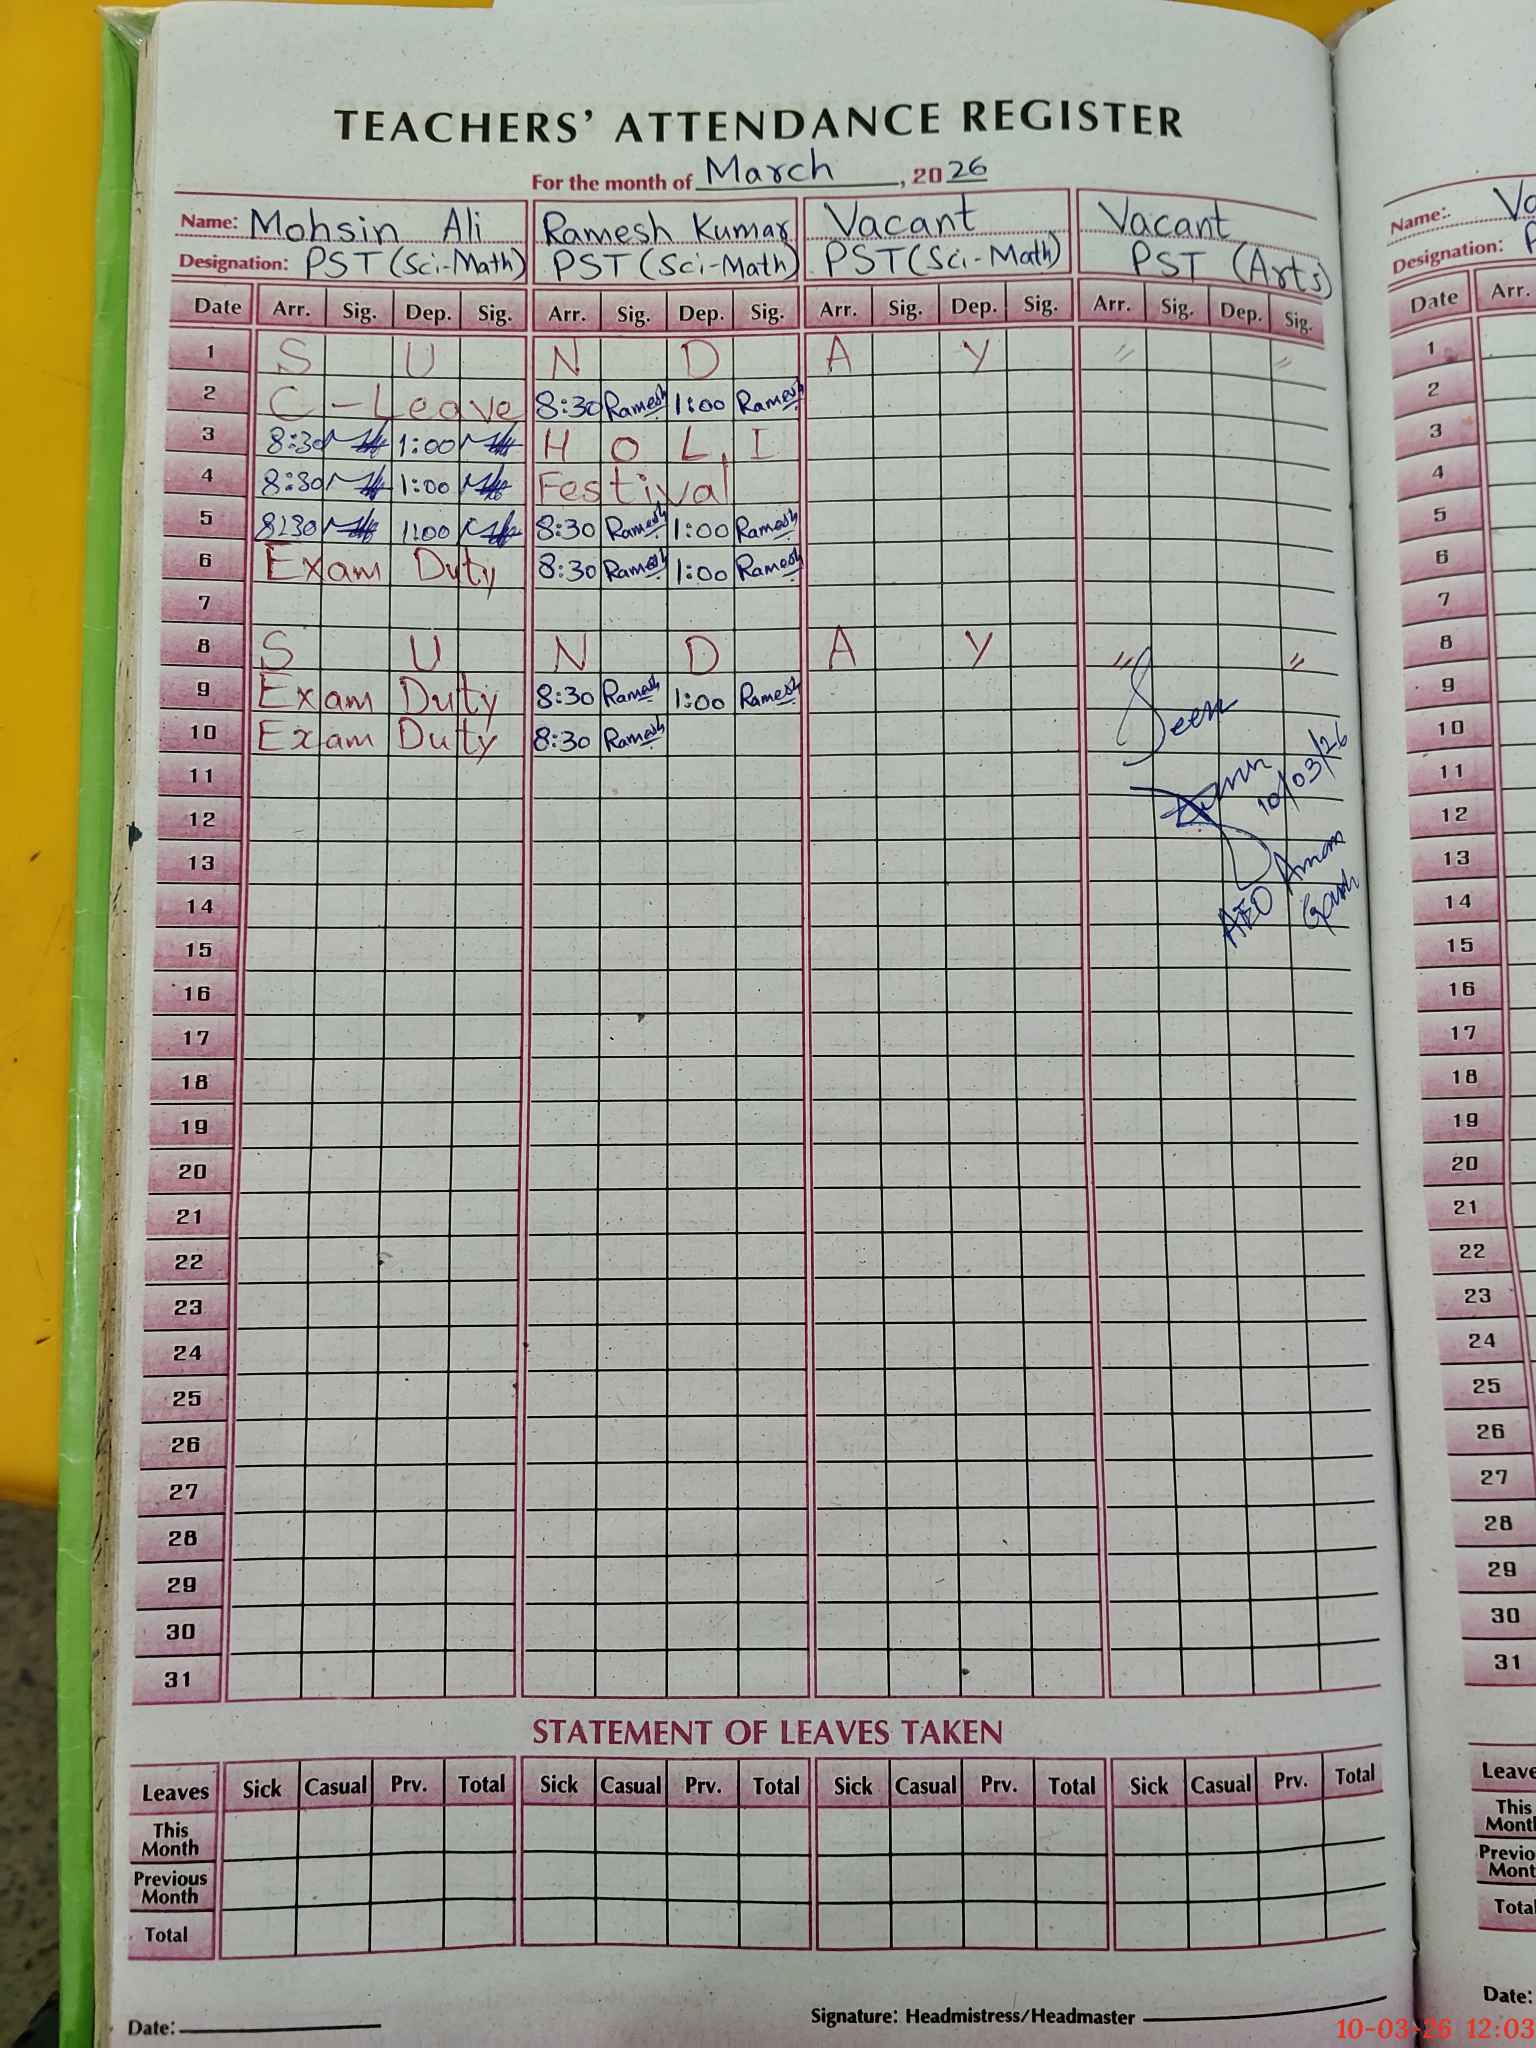 TEACHERS' ATTENDANCE REGISTER
For the month of March, 2026
Name: Mohsin Ali Ramesh Kumar Vacant Vacant
Designation: PST (Sci-Math) PST (Sci-Math) PST (Sci-Math) PST (Arts)
Date Arr. Sig. Dep. Sig. Arr. Sig. Dep. Sig. Arr. Sig. Dep. Sig. Arr. Sig. Dep. Sig.
1 S U N D A Y " "
2 C-Leave 8:30 Ramesh 1:00 Ramesh
3 8:30 1:00 H O L I
4 8:30 1:00 Festival
5 8:30 1:00 8:30 Ramesh 1:00 Ramesh
6 Exam Duty 8:30 Ramesh 1:00 Ramesh
7
8 S U N D A Y " "
9 Exam Duty 8:30 Ramesh 1:00 Ramesh
10 Exam Duty 8:30 Ramesh
Seen
10/03/26
AEO
11
12
13
14
15
16
17
18
19
20
21
22
23
24
25
26
27
28
29
30
31
STATEMENT OF LEAVES TAKEN
Leaves Sick Casual Prv. Total Sick Casual Prv. Total Sick Casual Prv. Total Sick Casual Prv. Total
This Month
Previous Month
Total
Date:
Signature: Headmistress/Headmaster
Name:
Designation:
Date Arr.
1
2
3
4
5
6
7
8
9
10
11
12
13
14
15
16
17
18
19
20
21
22
23
24
25
26
27
28
29
30
31
Date:
10-03-26 12:03